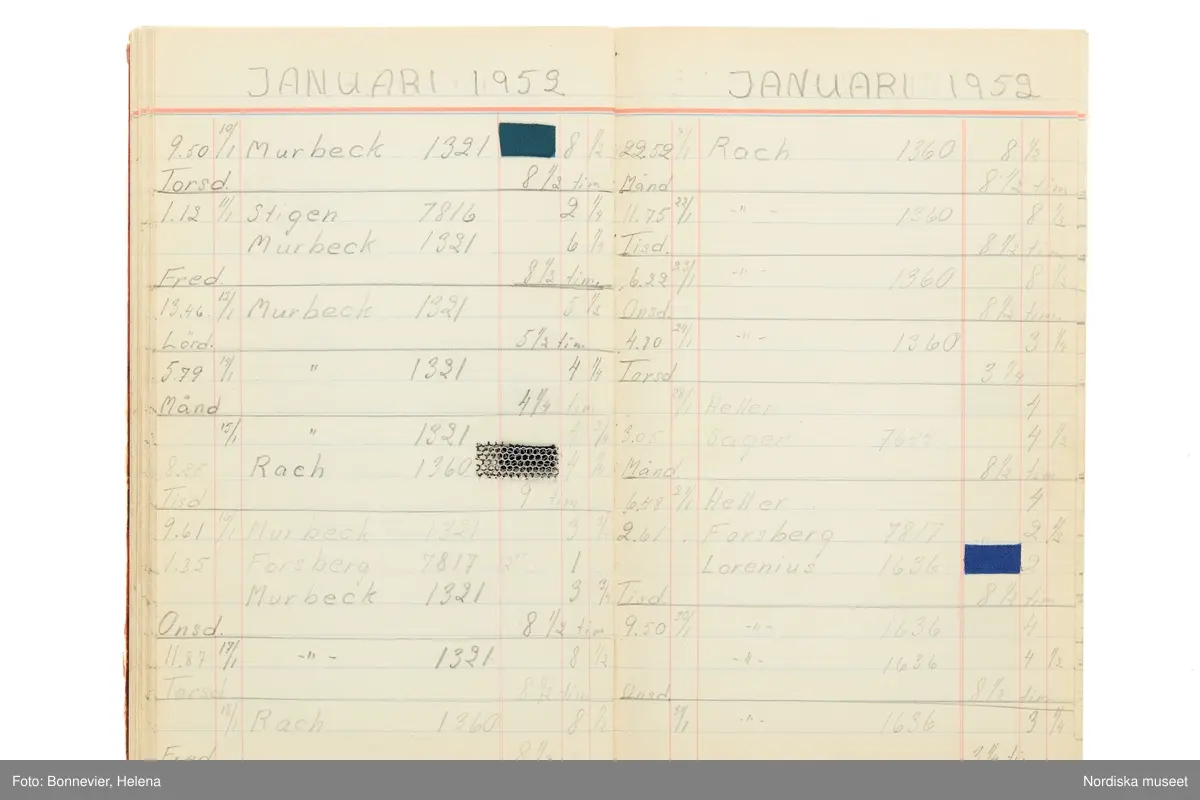 JANUARI 1952
9.50 10/1 Murbeck 1321 8 1/2
Torsd. 8 1/2 tim
1.12 11/1 Stigen 7816 2 1/4
Murbeck 1321 6 1/4
Fred 8 1/2 tim.
13.46 12/1 Murbeck 1321 5 1/2
Lörd. 5 1/2 tim.
5.79 14/1 " 1321 4 1/4
Månd 4 1/4 tim
15/1 " 1321
Rach 1360 4
Tisd 9 tim
9.61 16/1 Murbeck 1321 3 3/4
1.35 Forsberg 7817 1
Murbeck 1321 3 3/4
Onsd. 8 1/2 tim
11.87 17/1 -"- 1321 8 1/2
Torsd 8 1/2 tim
18/1 Rach 1360 8 1/2
Fred 8 1/2
JANUARI 1952
22.52 21/1 Rach 1360 8 1/2
Månd 8 1/2 tim
11.75 22/1 -"- 1360 8 1/2
Tisd. 8 1/2 tim
6.22 23/1 -"- 1360 8 1/2
Onsd. 8 1/2 tim.
4.80 24/1 -"- 1360 3 1/4
Torsd 3 1/4
28/1 Heller 4
3.05 Sager 4 1/2
Månd 8 1/2 tim
29/1 Heller 4
2.61 Forsberg 7817 2 1/2
Lorenius 1636 2
Tisd. 8 1/2 tim
9.50 30/1 -"- 1636 4
-"- 1636 4 1/2
Onsd. 8 1/2 tim
31/1 -"- 1636 3 1/4
Foto: Bonnevier, Helena
Nordiska museet